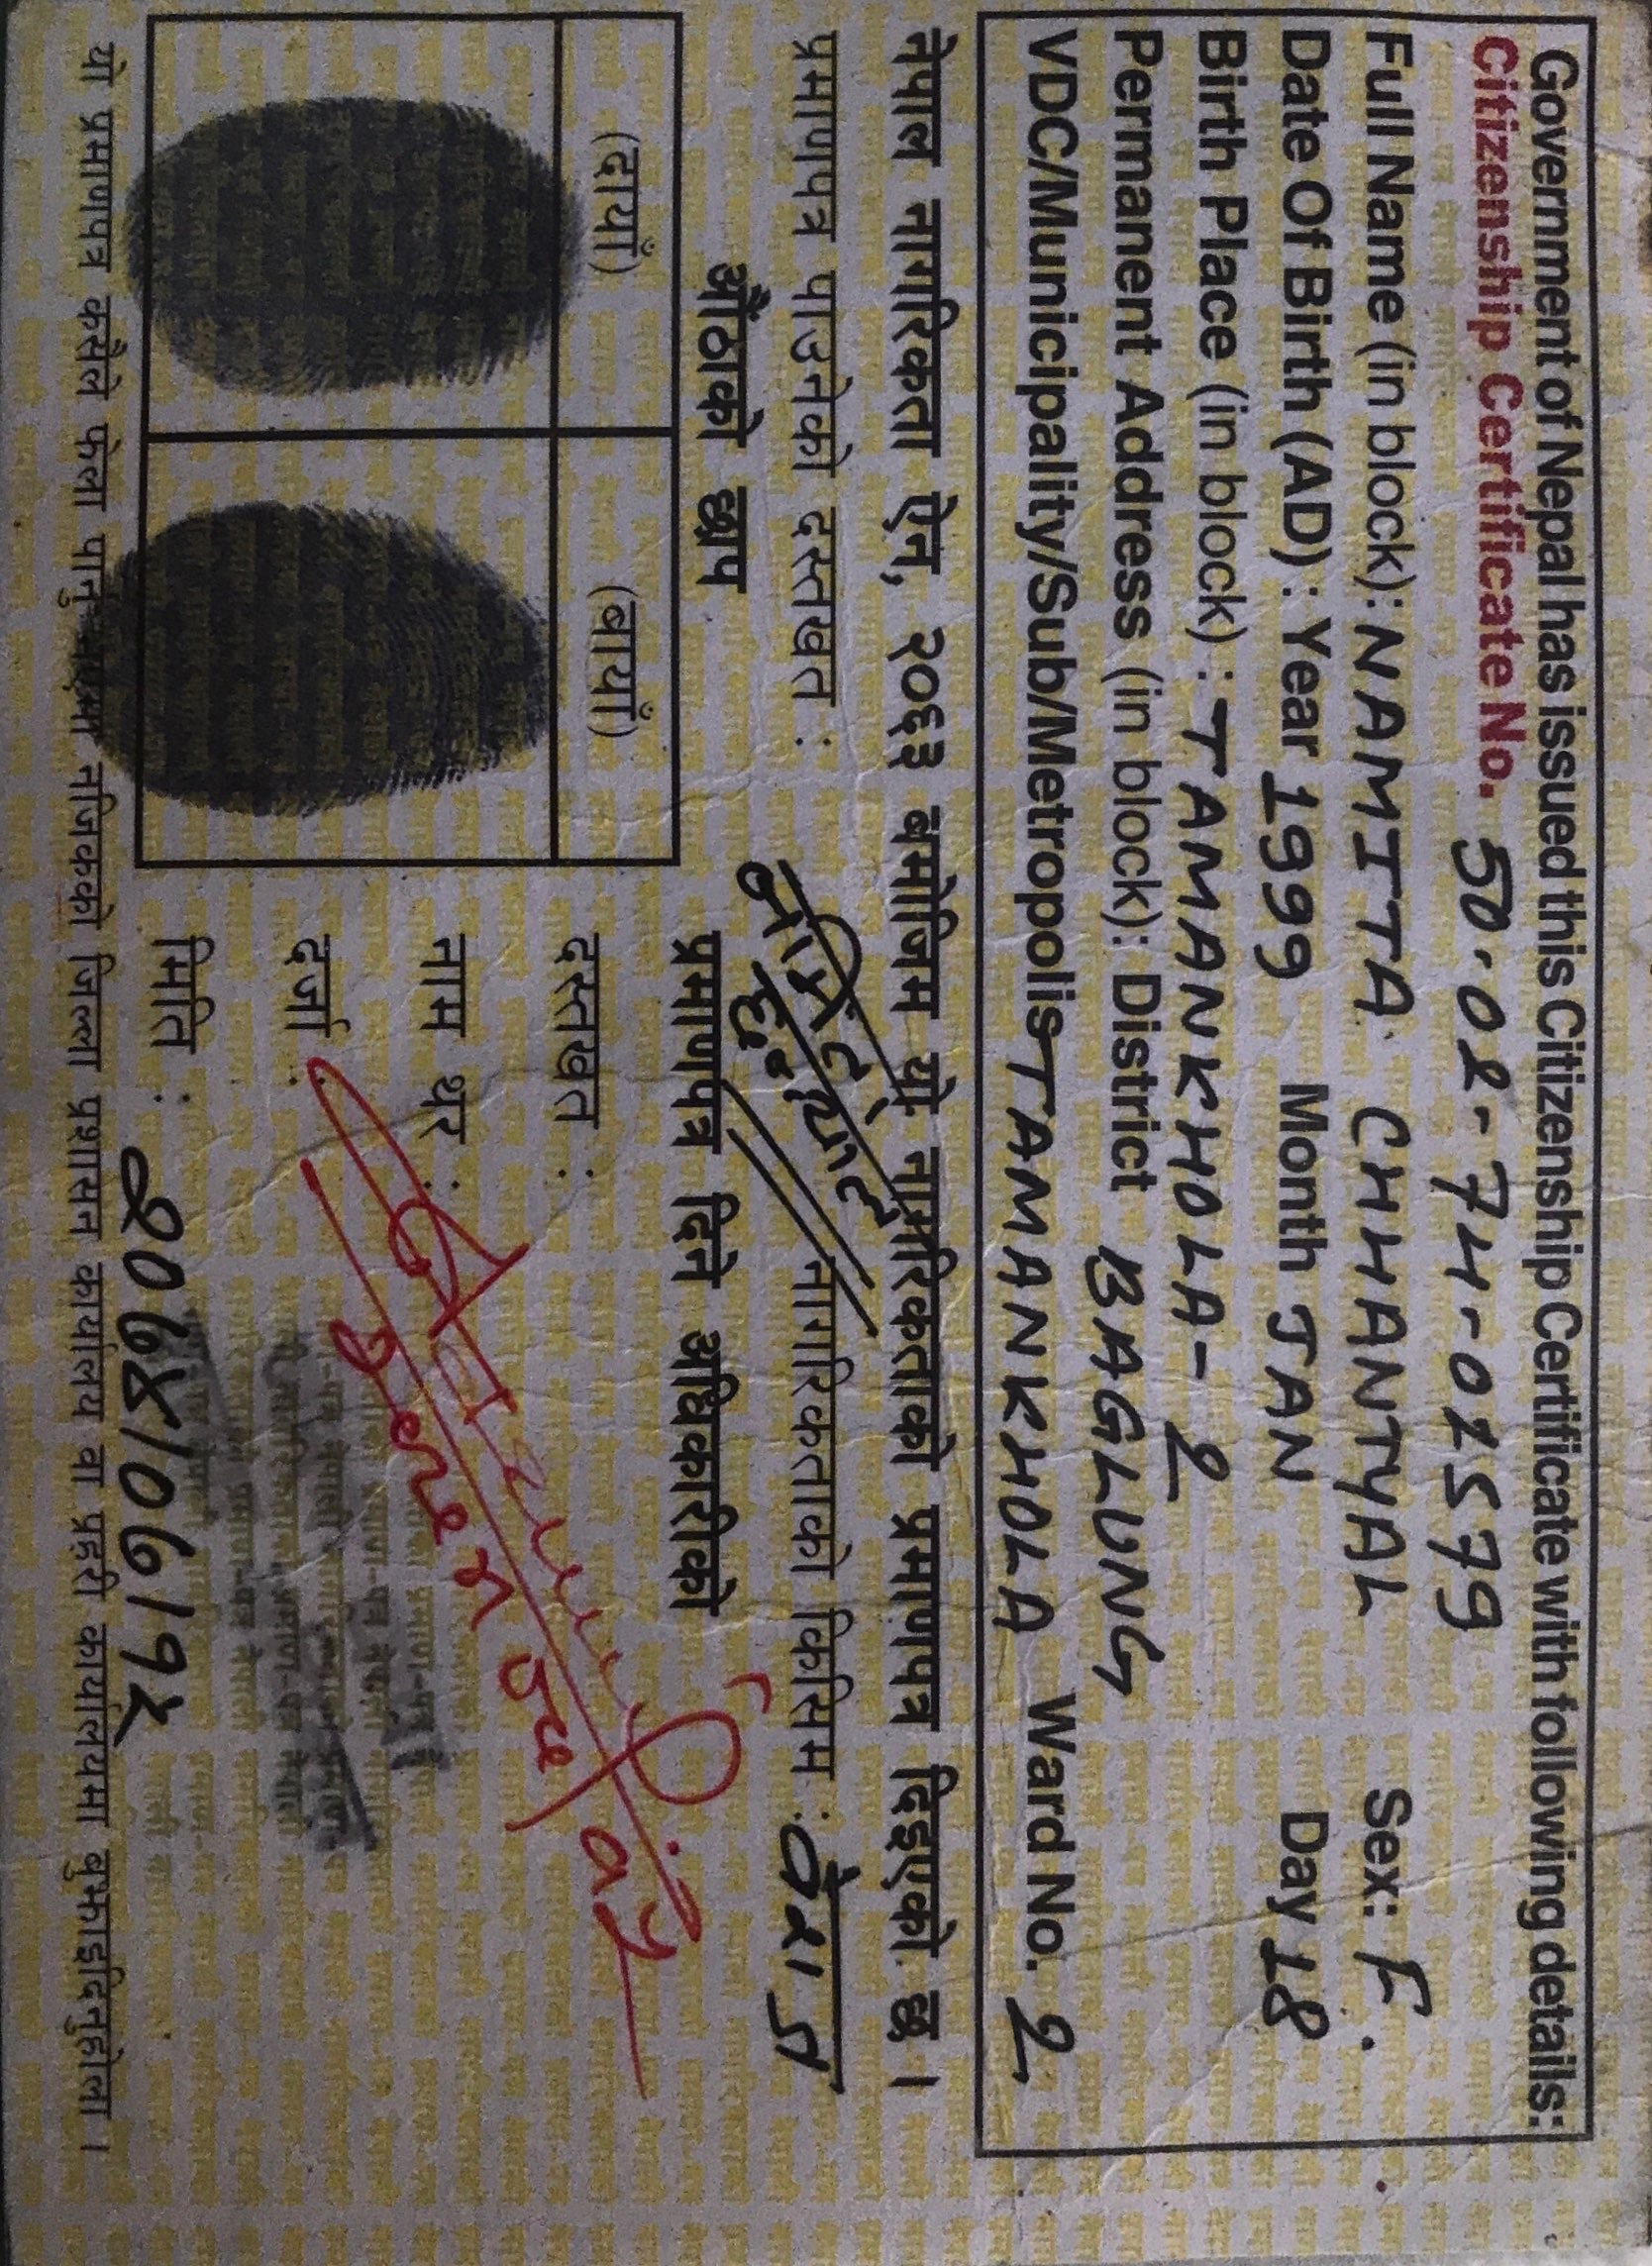 Government of Nepal has issued this Citizenship Certificate with following details:
Citizenship Certificate No. 50-02-74-01579
Full Name (in block): NAMITA CHHANTYAL Sex: F.
Date Of Birth (AD) : Year 1999 Month JAN Day 18
Birth Place (in block) : TAMANKHOLA- 2
Permanent Address (in block): District BAGLUNG
VDC/Municipality/Sub/Metropolis TAMANKHOLA Ward No. 2
नेपाल नागरिकता ऐन, २०६३ बमोजिम यो नागरिकताको प्रमाणपत्र दिइएको छ ।
प्रमाणपत्र पाउनेको दस्तखत : नागरिकताको किसिम : वंशज
औंठाको छाप
प्रमाणपत्र दिने अधिकारीको
(दायाँ) (बायाँ)
दस्तखत :
नाम थर :
दर्जा :
मिति :
यो प्रमाणपत्र कसैले फेला पार्नु भएमा नजिकको जिल्ला प्रशासन कार्यालय वा प्रहरी कार्यालयमा बुझाइदिनुहोला ।